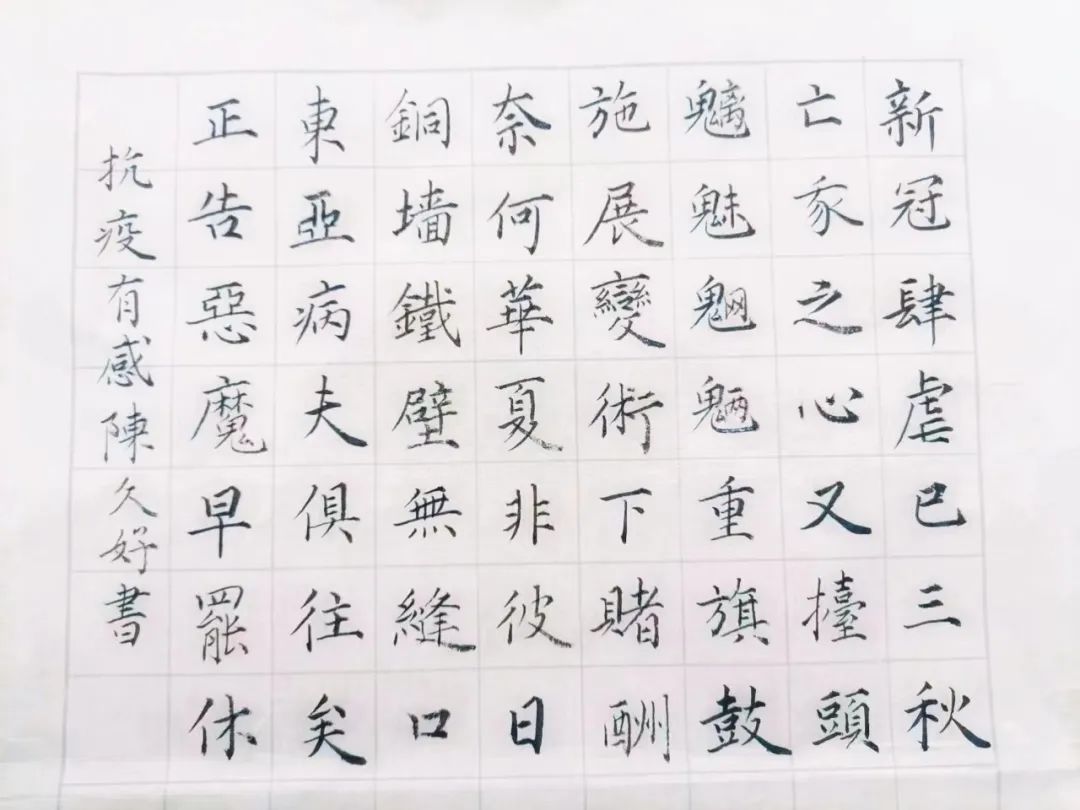 新冠肆虐已三秋
亡我之心又擡頭
魑魅魍魎重旗鼓
施展變術下賭酬
奈何華夏非彼日
銅墻鐵壁無縫口
東亞病夫俱往矣
正告惡魔早罷休
抗疫有感陳久好書